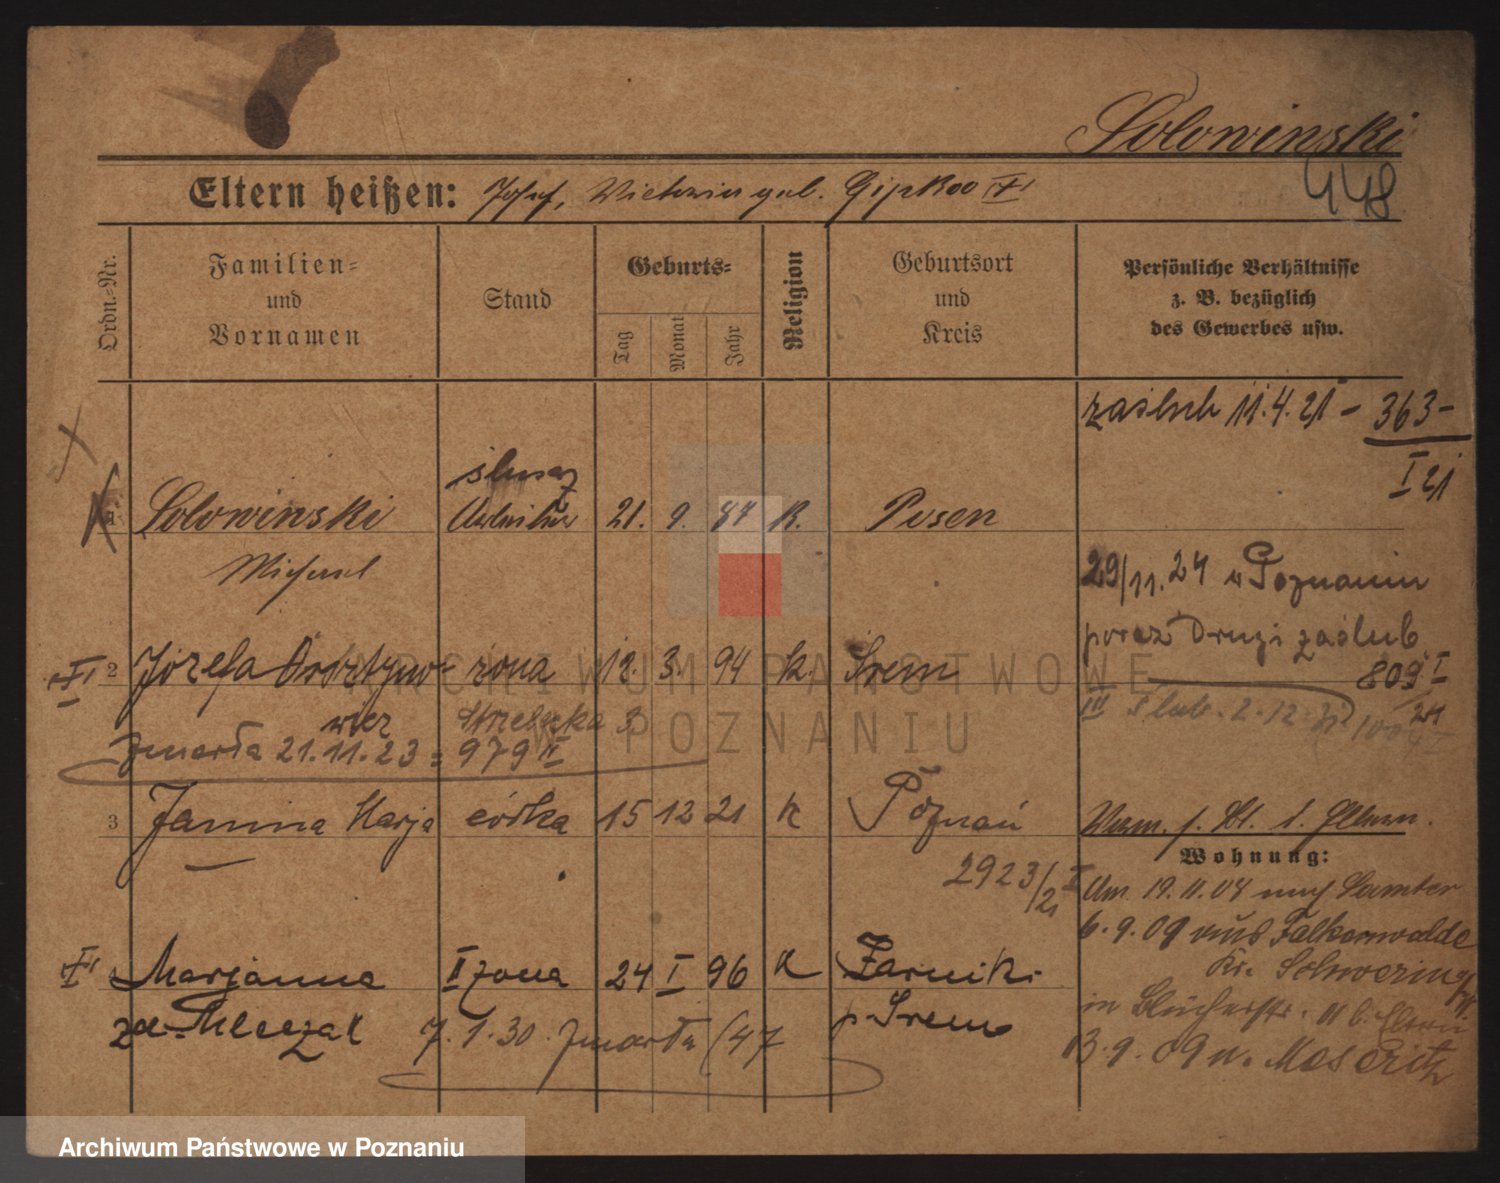 Solowinski
448
Eltern heißen: Josef, Victoria geb.
Ordn.-Nr.
Familien- und Vornamen
Stand
Geburts-
Tag
Monat
Jahr
Religion
Geburtsort und Kreis
Persönliche Verhältnisse z. B. bezüglich des Gewerbes usw.
zaślub 11.4.21 - 363 -
I 21
ślusarz
1 Solowinski Arbeiter 21. 9. 87 K. Posen
Michael
29/11.24 w Poznaniu
poraz Drugi zaślub
809 I
24
2 Józefa żona 12. 3. 94 K. Śrem
III ślub. 2.12.
zmarła 21.11.23 = 979 II
3 Janina Marja córka 15 12 21 K Poznań
2923/21 I
Wohnung:
Am 19.11.08 nach Samter
6.9.09 aus Falkenwalde
Kr. Schwerin
in b. Eltern
13.9.09 n. Meseritz
4 Marjanna II żona 24 I 96 K Żarniki
zd. Mleczak p. Śrem
7.1.30 zmarła (47
ARCHIWUM PAŃSTWOWE
W POZNANIU
Archiwum Państwowe w Poznaniu